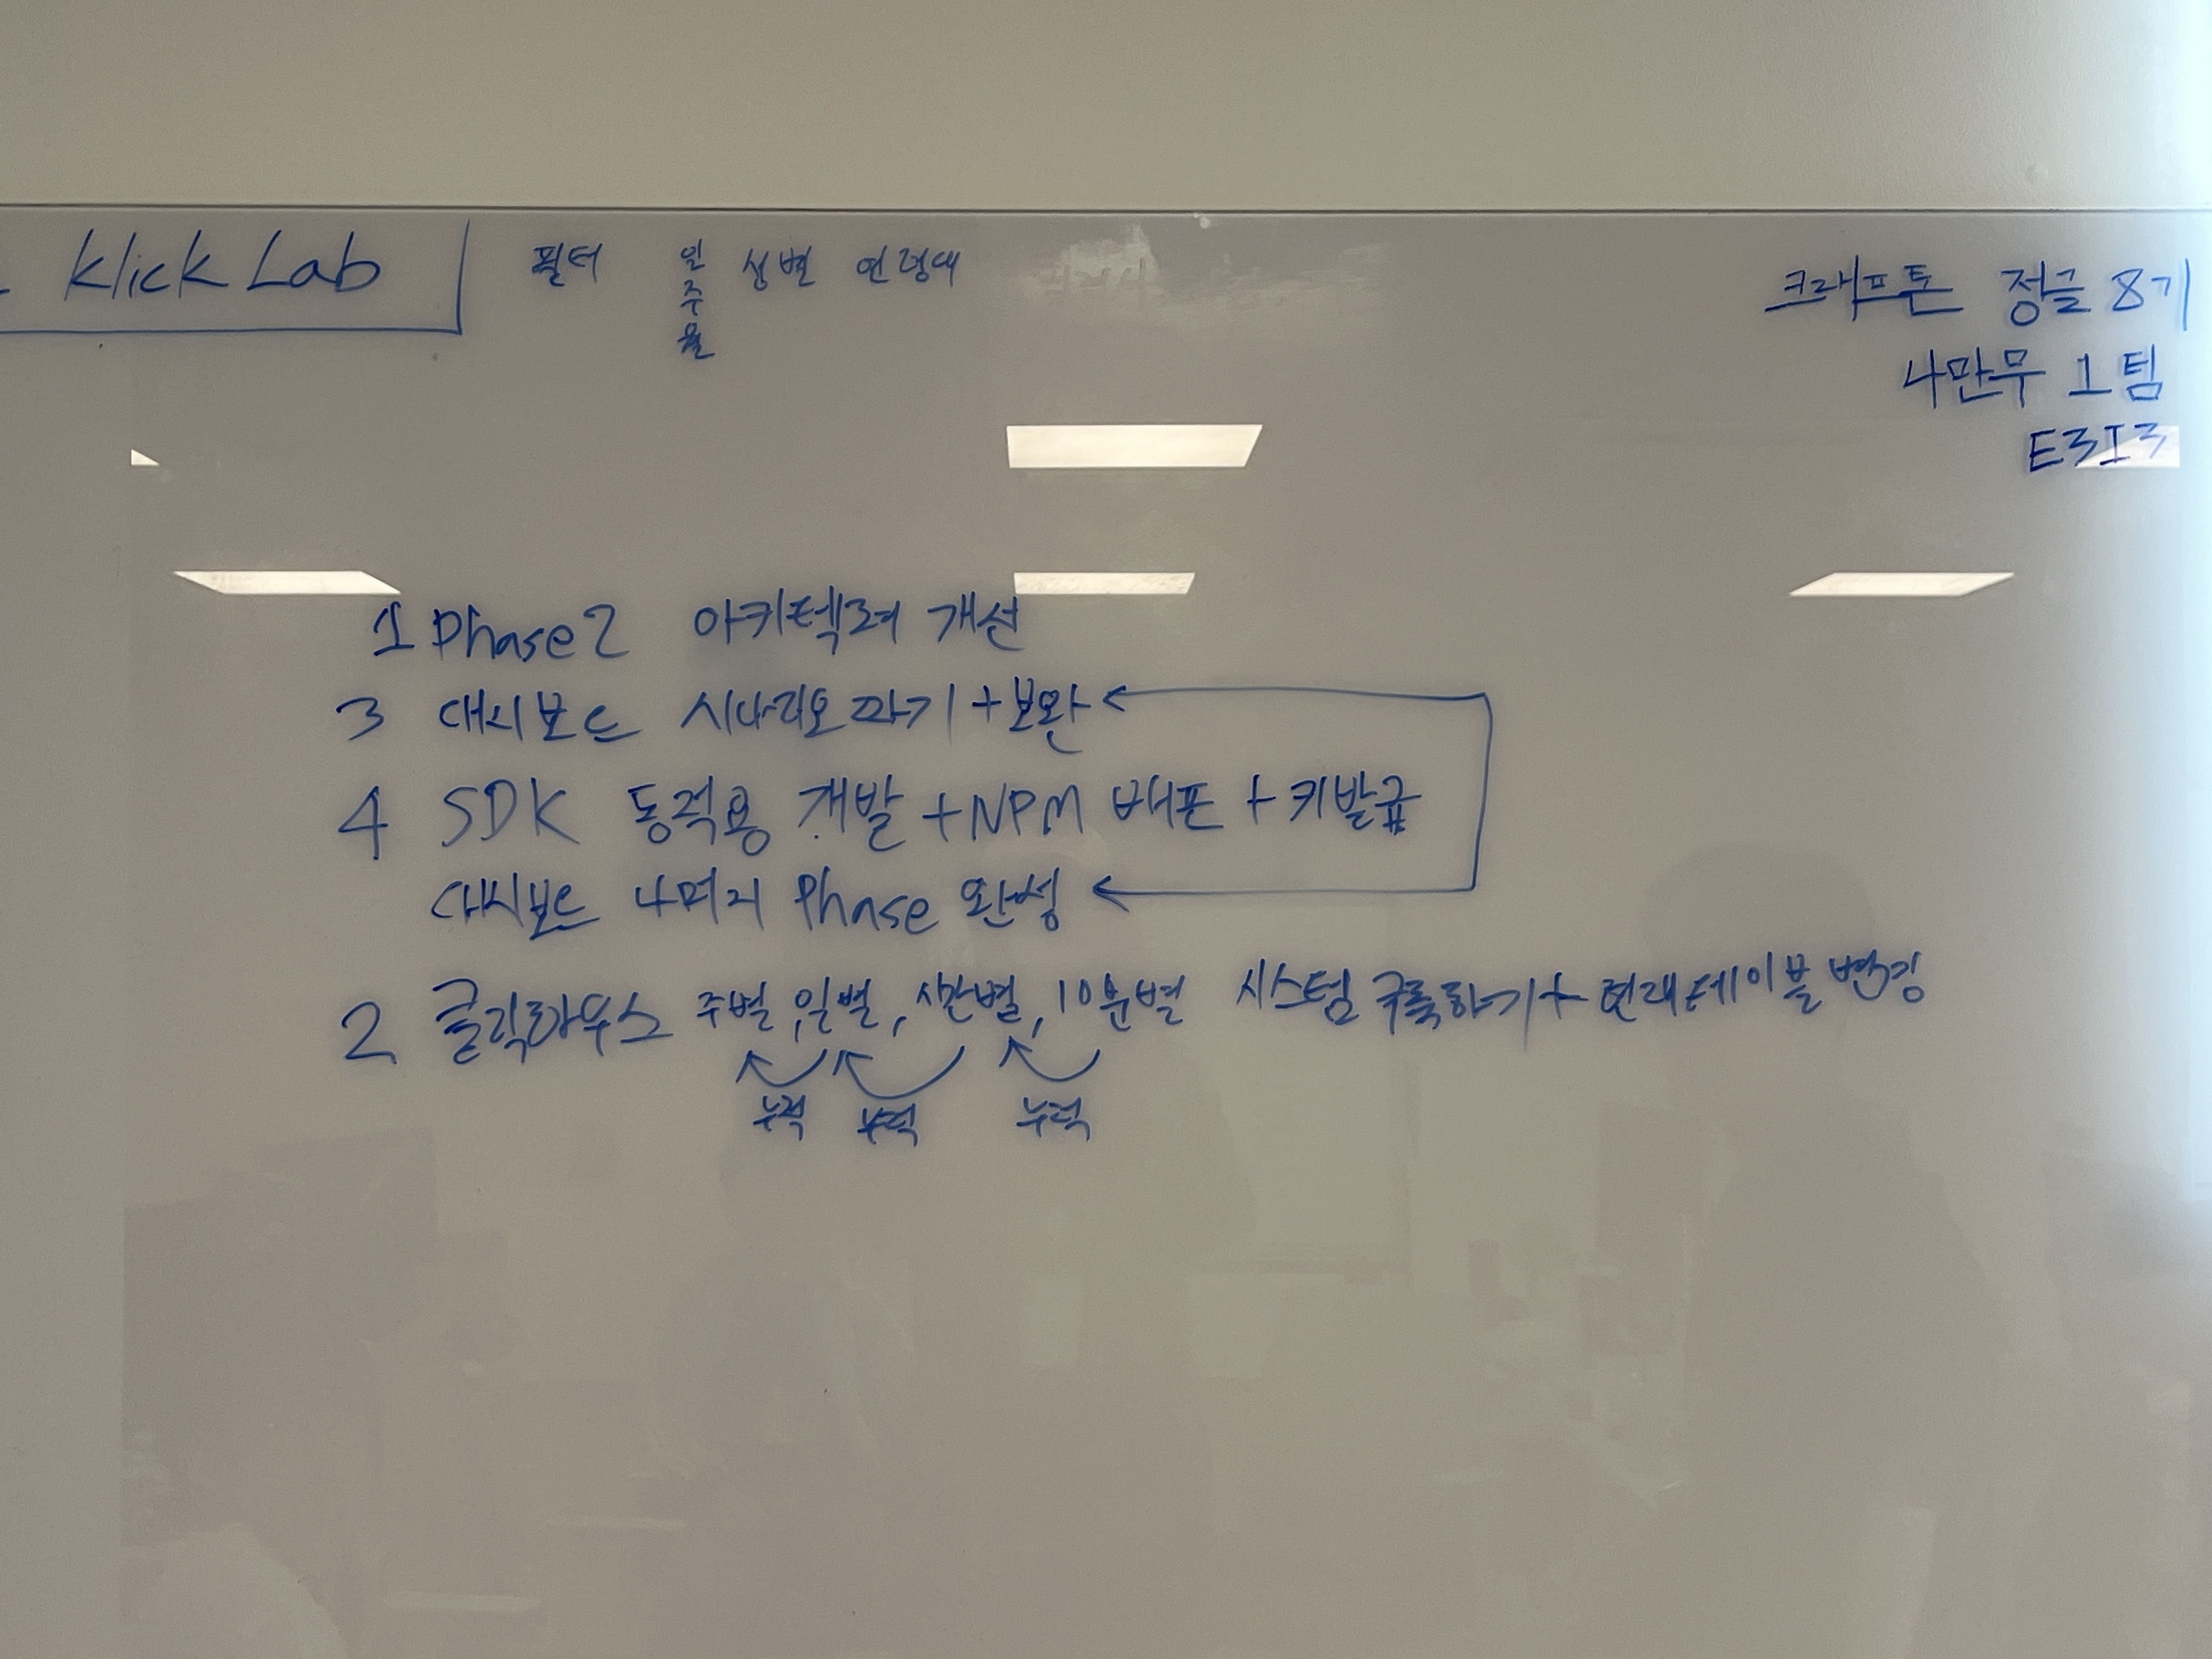 Klick Lab
필터 일 성별 연령대
주
월
크래프톤 정글 8기
나만무 1팀
E3I3
1 Phase2 아키텍쳐 개선
3 대시보드 시나리오짜기+보완
4 SDK 동적용 개발+NPM 배포 + 키발급
대시보드 나머지 Phase 완성
2 클릭하우스 주별, 일별, 시간별, 10분별 시스템 구축하기+ 현재테이블변경
누적 누적 누적